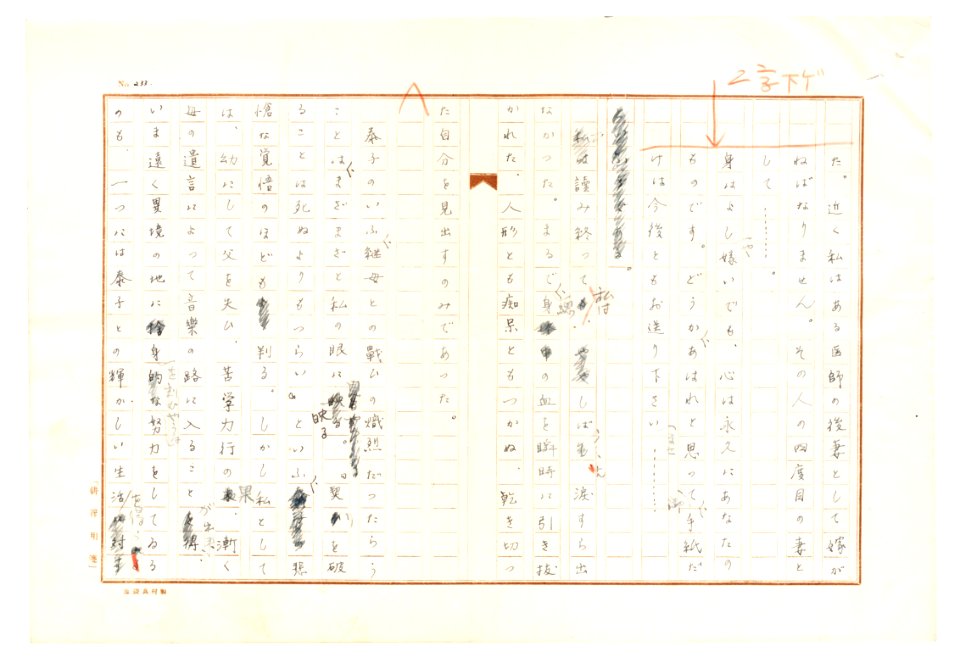 No. 233
2字下ゲ
た。近く私はある医師の後妻として嫁が
ねばなりません。その人の四度目の妻と
して…………。
身はよし嫁いでも、心は永久にあなたの
ものです。どうかあはれと思って手紙だ
けは今後ともお送り下さい…………
私は
讀み終って
しばし
涙すら出
なかつた。まるで身
中の血を瞬時に引き抜
かれた、人形とも痴呆ともつかぬ、乾き切つ
た自分を見出すのみであつた。
泰子のいふ継母との戰ひの熾烈だつたらう
ことはまざまざと私の眼に
映る。
契
りを破
ることは死ぬよりもつらいといふ
愴な覚悟のほども
判る。しかし私として
は、幼にして父を失ひ、苦学力行の
果、
漸く
母の遺言によつて音樂の路に入ること
が出来、
いま遠く異境の地に
身
を刻むやうな
努力をしてゐる
のも、一つには泰子との輝かしい生活